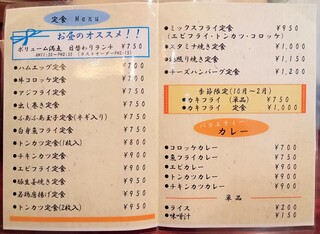 定食 Menu
お昼のオススメ!!
ボリューム満点 日替わりランチ ¥750
AM11:30～PM2:30 (ラストオーダーPM2:15)
●ハムエッグ定食 ¥700
●牛コロッケ定食 ¥700
●アジフライ定食 ¥750
●出し巻き定食 ¥750
●ふわふわ玉子定食(ネギ入り) ¥750
●白身魚フライ定食 ¥750
●トンカツ定食(1枚) ¥800
●チキンカツ定食 ¥900
●エビフライ定食 ¥900
●豚生姜焼き定食 ¥950
●若鶏唐揚げ定食 ¥950
●トンカツ定食(2枚) ¥950
●ミックスフライ定食 ¥950
(エビフライ・トンカツ・コロッケ)
●スタミナ焼き定食 ¥1,000
照り焼き定食 ¥1,150
●チーズハンバーグ定食 ¥1,200
季節限定(10月～2月)
●カキフライ (単品) ¥750
●カキフライ 定食 ¥1,000
バラエティー
カレー
●コロッケカレー ¥700
●魚フライカレー ¥750
●エビカツカレー ¥900
●トンカツカレー ¥900
●チキンカツカレー ¥900
単品
●ライス ¥200
●味噌汁 ¥150